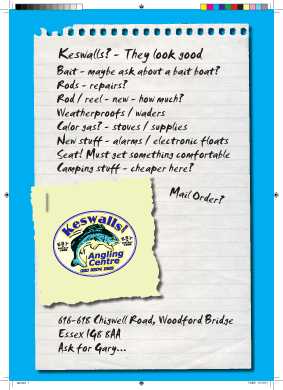 Keswalls? - They look good
Bait - maybe ask about a bait boat?
Rods - repairs?
Rod / reel - new - how much?
Weatherproofs / waders
Calor gas? - stoves / supplies
New stuff - alarms / electronic floats
Seat! Must get something comfortable
Camping stuff - cheaper here?
Mail Order?
Keswalls!
Angling
Centre
616-618 Chigwell Road, Woodford Bridge
Essex IG8 8AA
Ask for Gary...